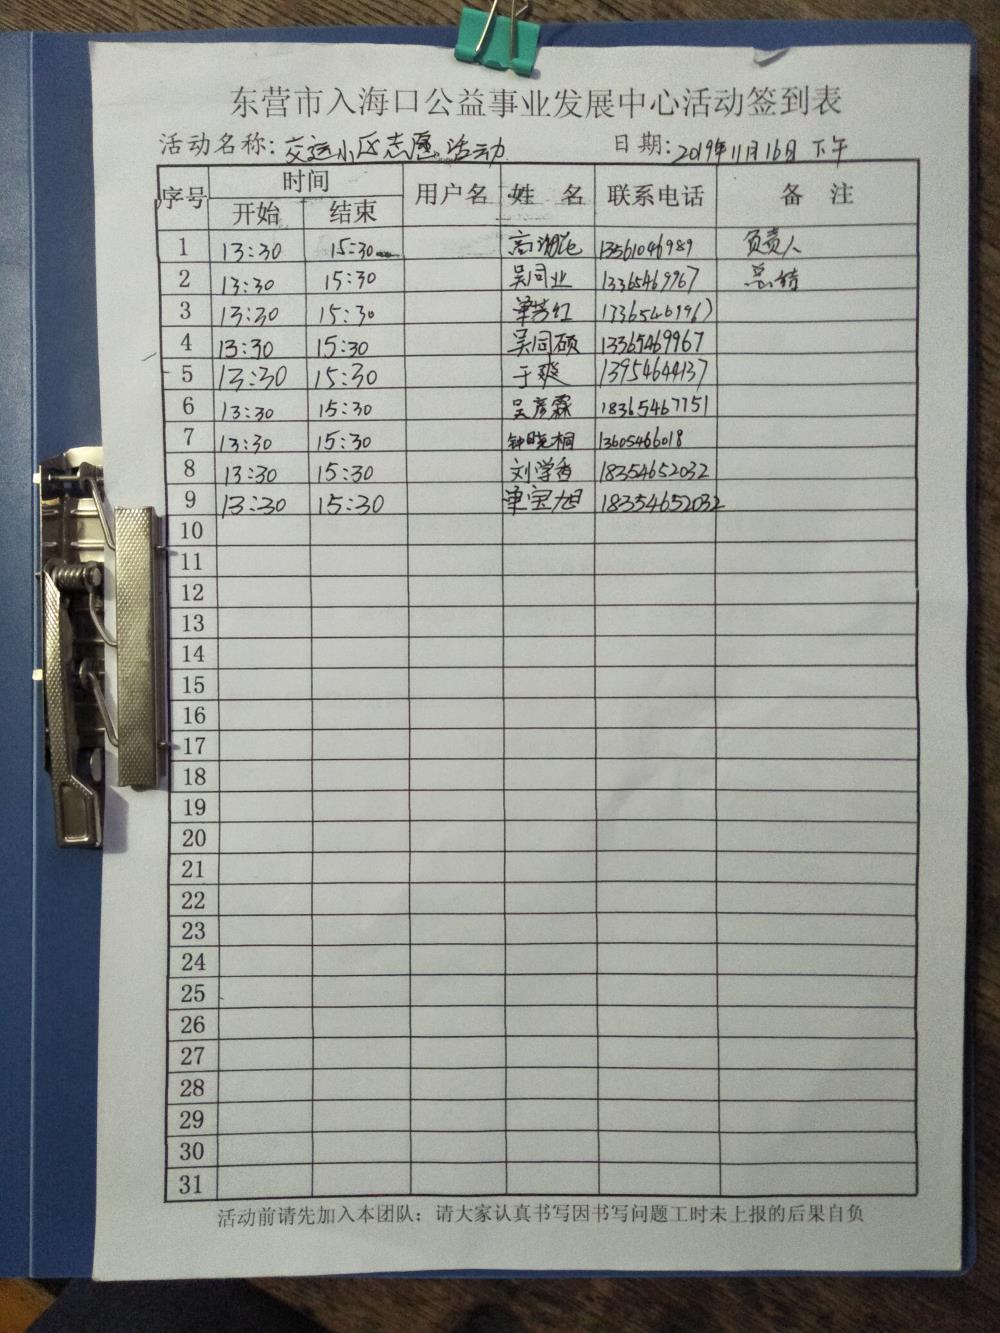 东营市入海口公益事业发展中心活动签到表
活动名称: 交运小区志愿活动 日期: 2019年11月16日下午
序号 时间 用户名 姓 名 联系电话 备 注
开始 结束
1 13:30 15:30 13561046989 负责人
2 13:30 15:30 吴同业 13365469967
3 13:30 15:30 单芳红 13365469967
4 13:30 15:30 吴同硕 13365469967
5 13:30 15:30 于爽 13954644137
6 13:30 15:30 吴彦霖 18365467751
7 13:30 15:30 钟晓桐 13605466018
8 13:30 15:30 刘学香 18354652032
9 13:30 15:30 单宝旭 18354652032
10
11
12
13
14
15
16
17
18
19
20
21
22
23
24
25
26
27
28
29
30
31
活动前请先加入本团队；请大家认真书写因书写问题工时未上报的后果自负